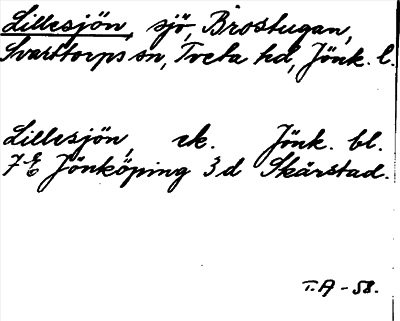 Lillesjön, sjö, Brostugan,
Svarttorps sn, Tveta hd, Jönk. l.
Lillesjön, ek. Jönk. bl.
7 E Jönköping 3 d Skärstad.
T.A - 58.